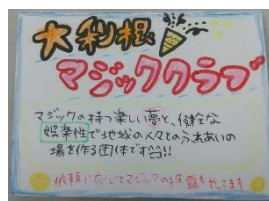 大利根
マジッククラブ
マジックの持つ楽しい夢と、健全な
娯楽性で地域の人々とのふれあいの
場を作る団体です!!
依頼に応じてマジックの披露もやってます